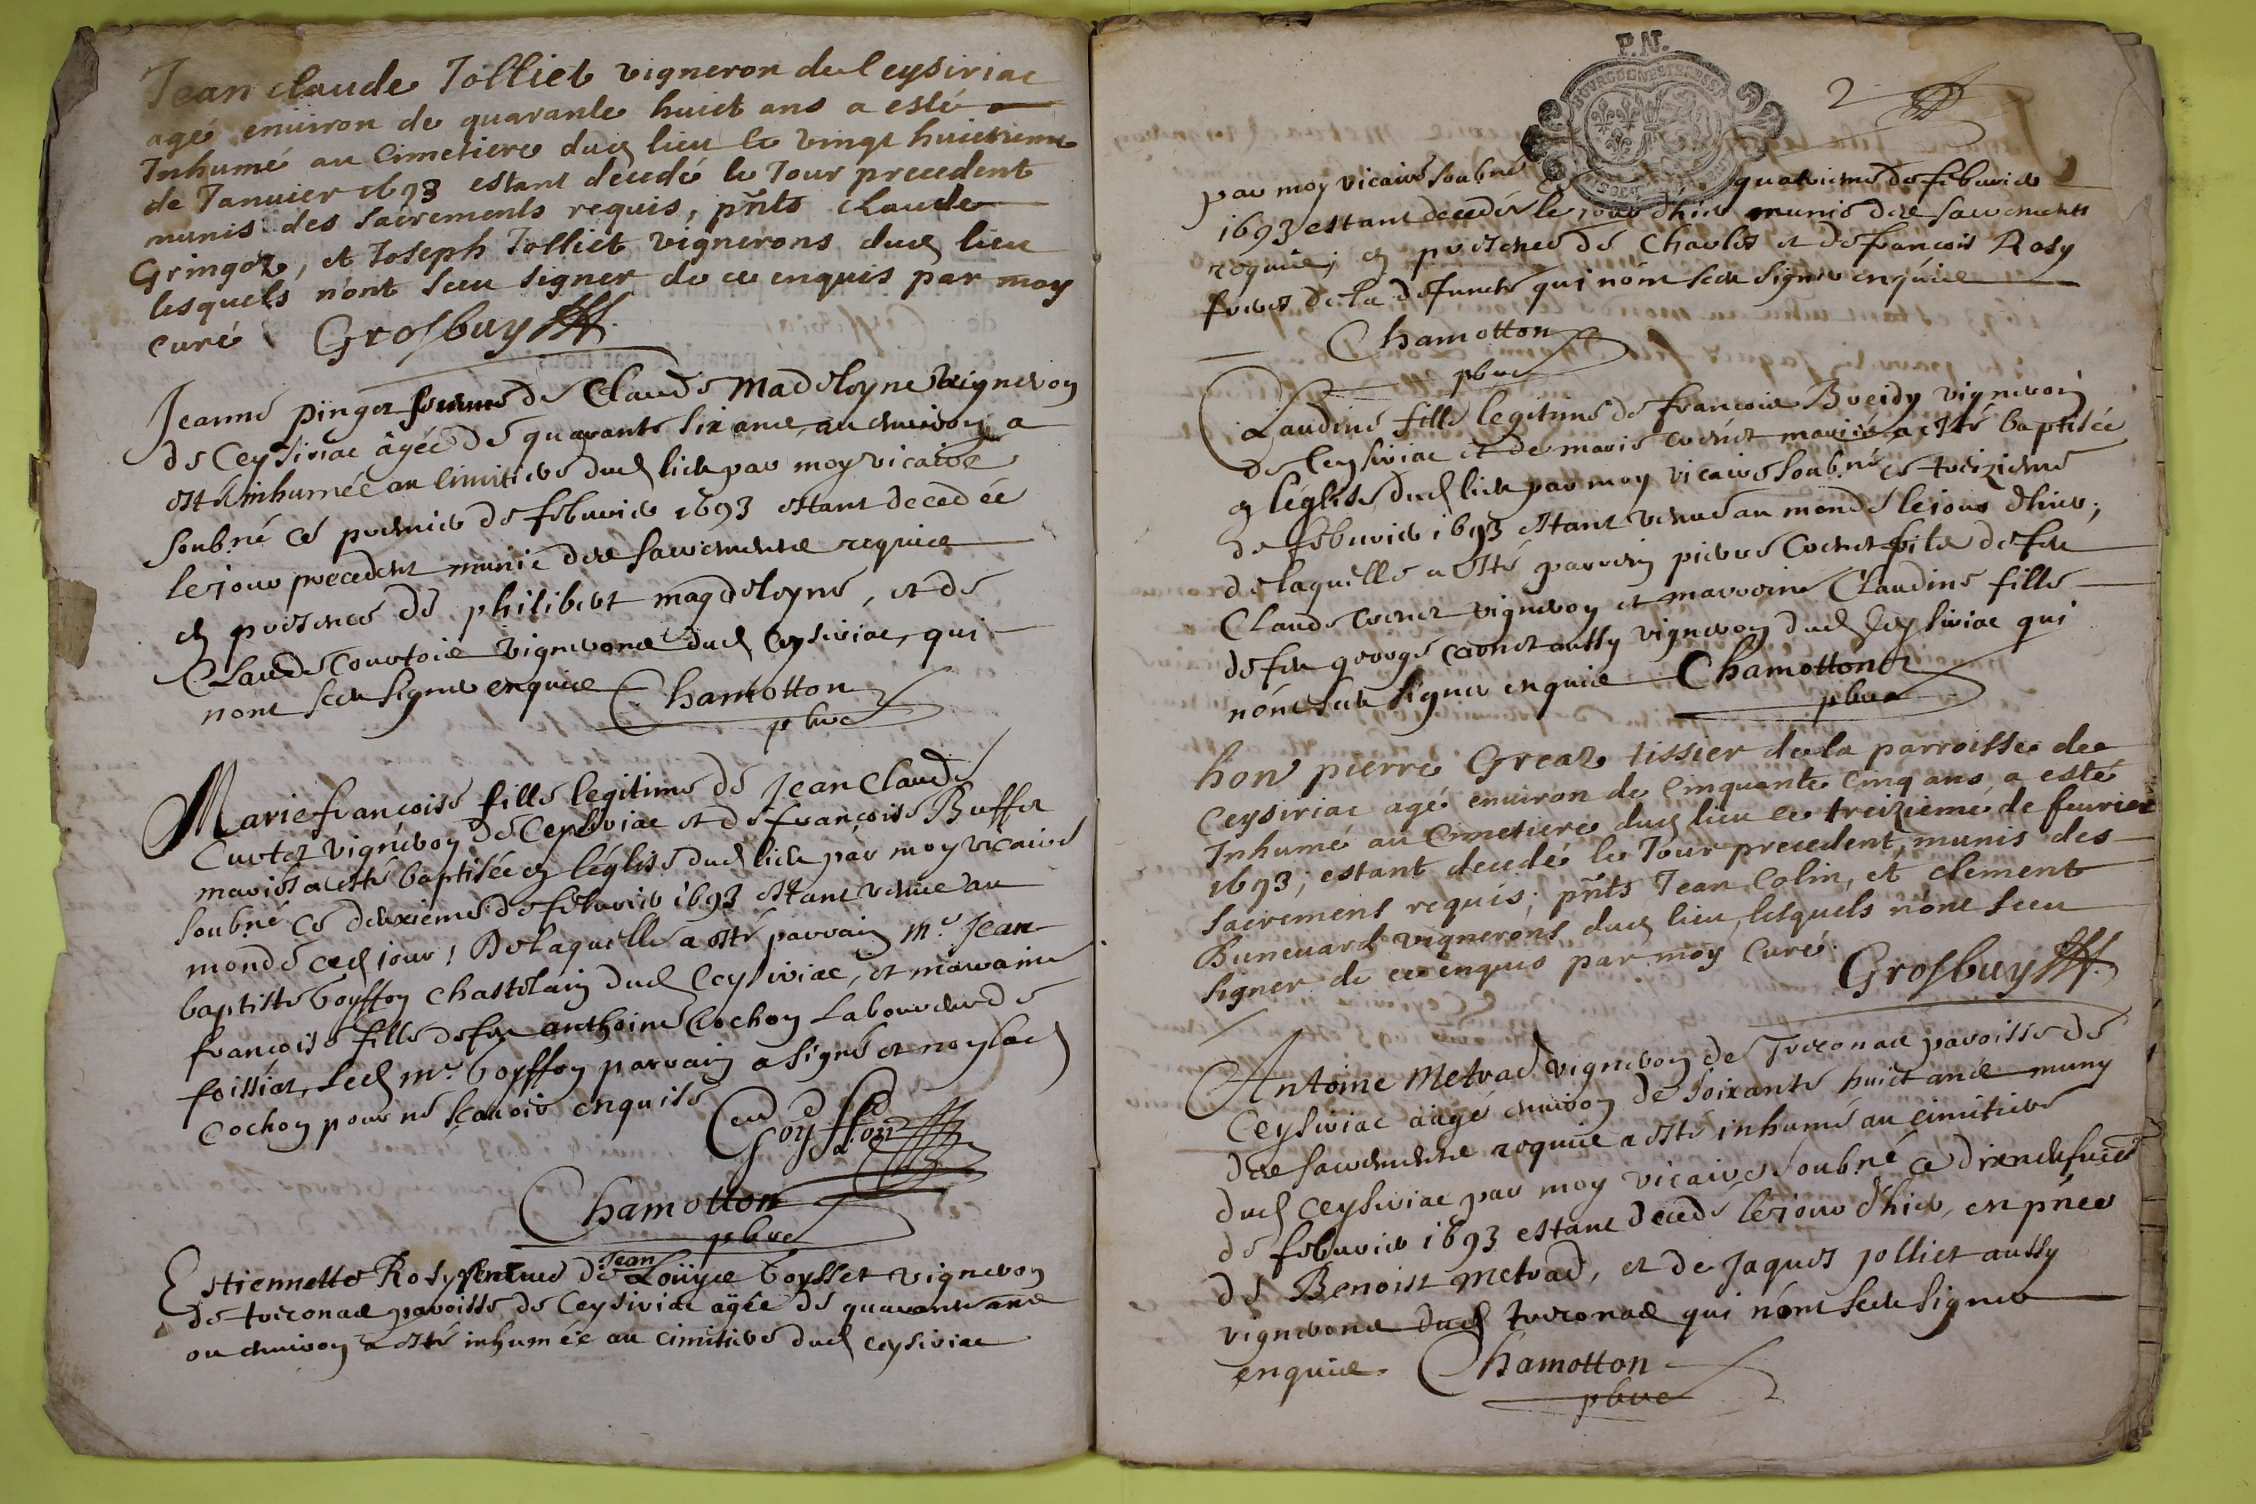 Jean claude Jolliet vigneron de Ceysiriac
agé enuiron de quarante huict ans a esté
Inhumé au Cimetiere dud lieu le vingt huictieme
de Januier 1693 estant decedé le Jour precedent
munis des sacrements requis, pnts claude
Gringoz, et Joseph Jolliet vignerons dud lieu
lesquels n'ont sceu signer de ce enquis par moy
curé Grosbuy
Jeanne pinget femme de Claude Madeleyne vigneron
de Ceysiriac âgée de quarante six ans, ou enuiron a
esté inhumée au Cimitiere dud lieu par moy vicaire
soubné ce premier de febuvier 1693 estant decedée
le jour precedent munie des sacrements requis
en presence de philibert magdeleyne, et de
Claude Courtois vignerons dud Ceysiriac, qui
nont sceu signer enquis Chamotton
pbre
Marie françoise fille legitime de Jean Claude
Curtet vigneron de Ceysiriac et de françoise Buffet
mariés a esté baptisée en l'église dud lieu par moy vicaire
soubné ce deuxieme de febuvier 1693 estant venue au
monde ced jour; De laquelle a esté parrain mr Jean
baptiste Goyffon Chastelain dud Ceysiriac, et marraine
françoise fille de feu anthoine Cochon Laboureur de
foissiat, Led mr Goyffon parrain a signé et non lad
Cochon pour ne sçavoir enquise
Goyffon
Chamotton
pbre
Jean
Estiennette Rosy femme de Loüys Goysset vigneron
de treconas paroisse de Ceysiriac agée de quarante ans
ou enuiron a esté inhumée au cimitiere dud ceysiriac
P.N.
2
par moy vicaire soubné quatrieme de febuvier
1693 estant decedée le jour dhier munie des sacrements
requis; en presence de Charles et de françois Rosy
freres de la defuncte qui nont sceu signer enquis
Chamotton
pbre
Claudine fille legitime de françois Breidy vigneron
de Ceysiriac et de marie mariés a esté baptisée
en l'église dud lieu par moy vicaire soubné ce treizieme
de febuvier 1693 estant venue au monde le jour dhier;
de laquelle a esté parrein pierre fils de feu
Claude vigneron et marreine Claudine fille
de feu george aussy vigneron dud Ceysiriac qui
nont sceu signer enquis Chamotton
pbre
hon pierre Greaz tissier de la parroisse de
Ceysiriac agé enuiron de Cinquante Cinq ans a esté
Inhumé au Cimetiere dud lieu le treizieme de feurier
1693; estant decedé le Jour precedent, munis des
sacremens requis; pnts Jean Colin, et clement
Buneuard vignerons dud lieu, lesquels n'ont sceu
signer de ce enquis par moy Curé. Grosbuy
Antoine Metrad vigneron de Treconas paroisse de
Ceysiriac aagé enuiron de soixante huict ans muny
des sacrements requis a esté inhumé au cimitiere
dud Ceysiriac par moy vicaire soubné ce dixneufuie
de febuvier 1693 estant decedé le jour dhier, en pnce
de Benoist Metrad, et de Jaques jolliet aussy
vignerons dud treconas qui nont sceu signer
enquis. Chamotton
pbre